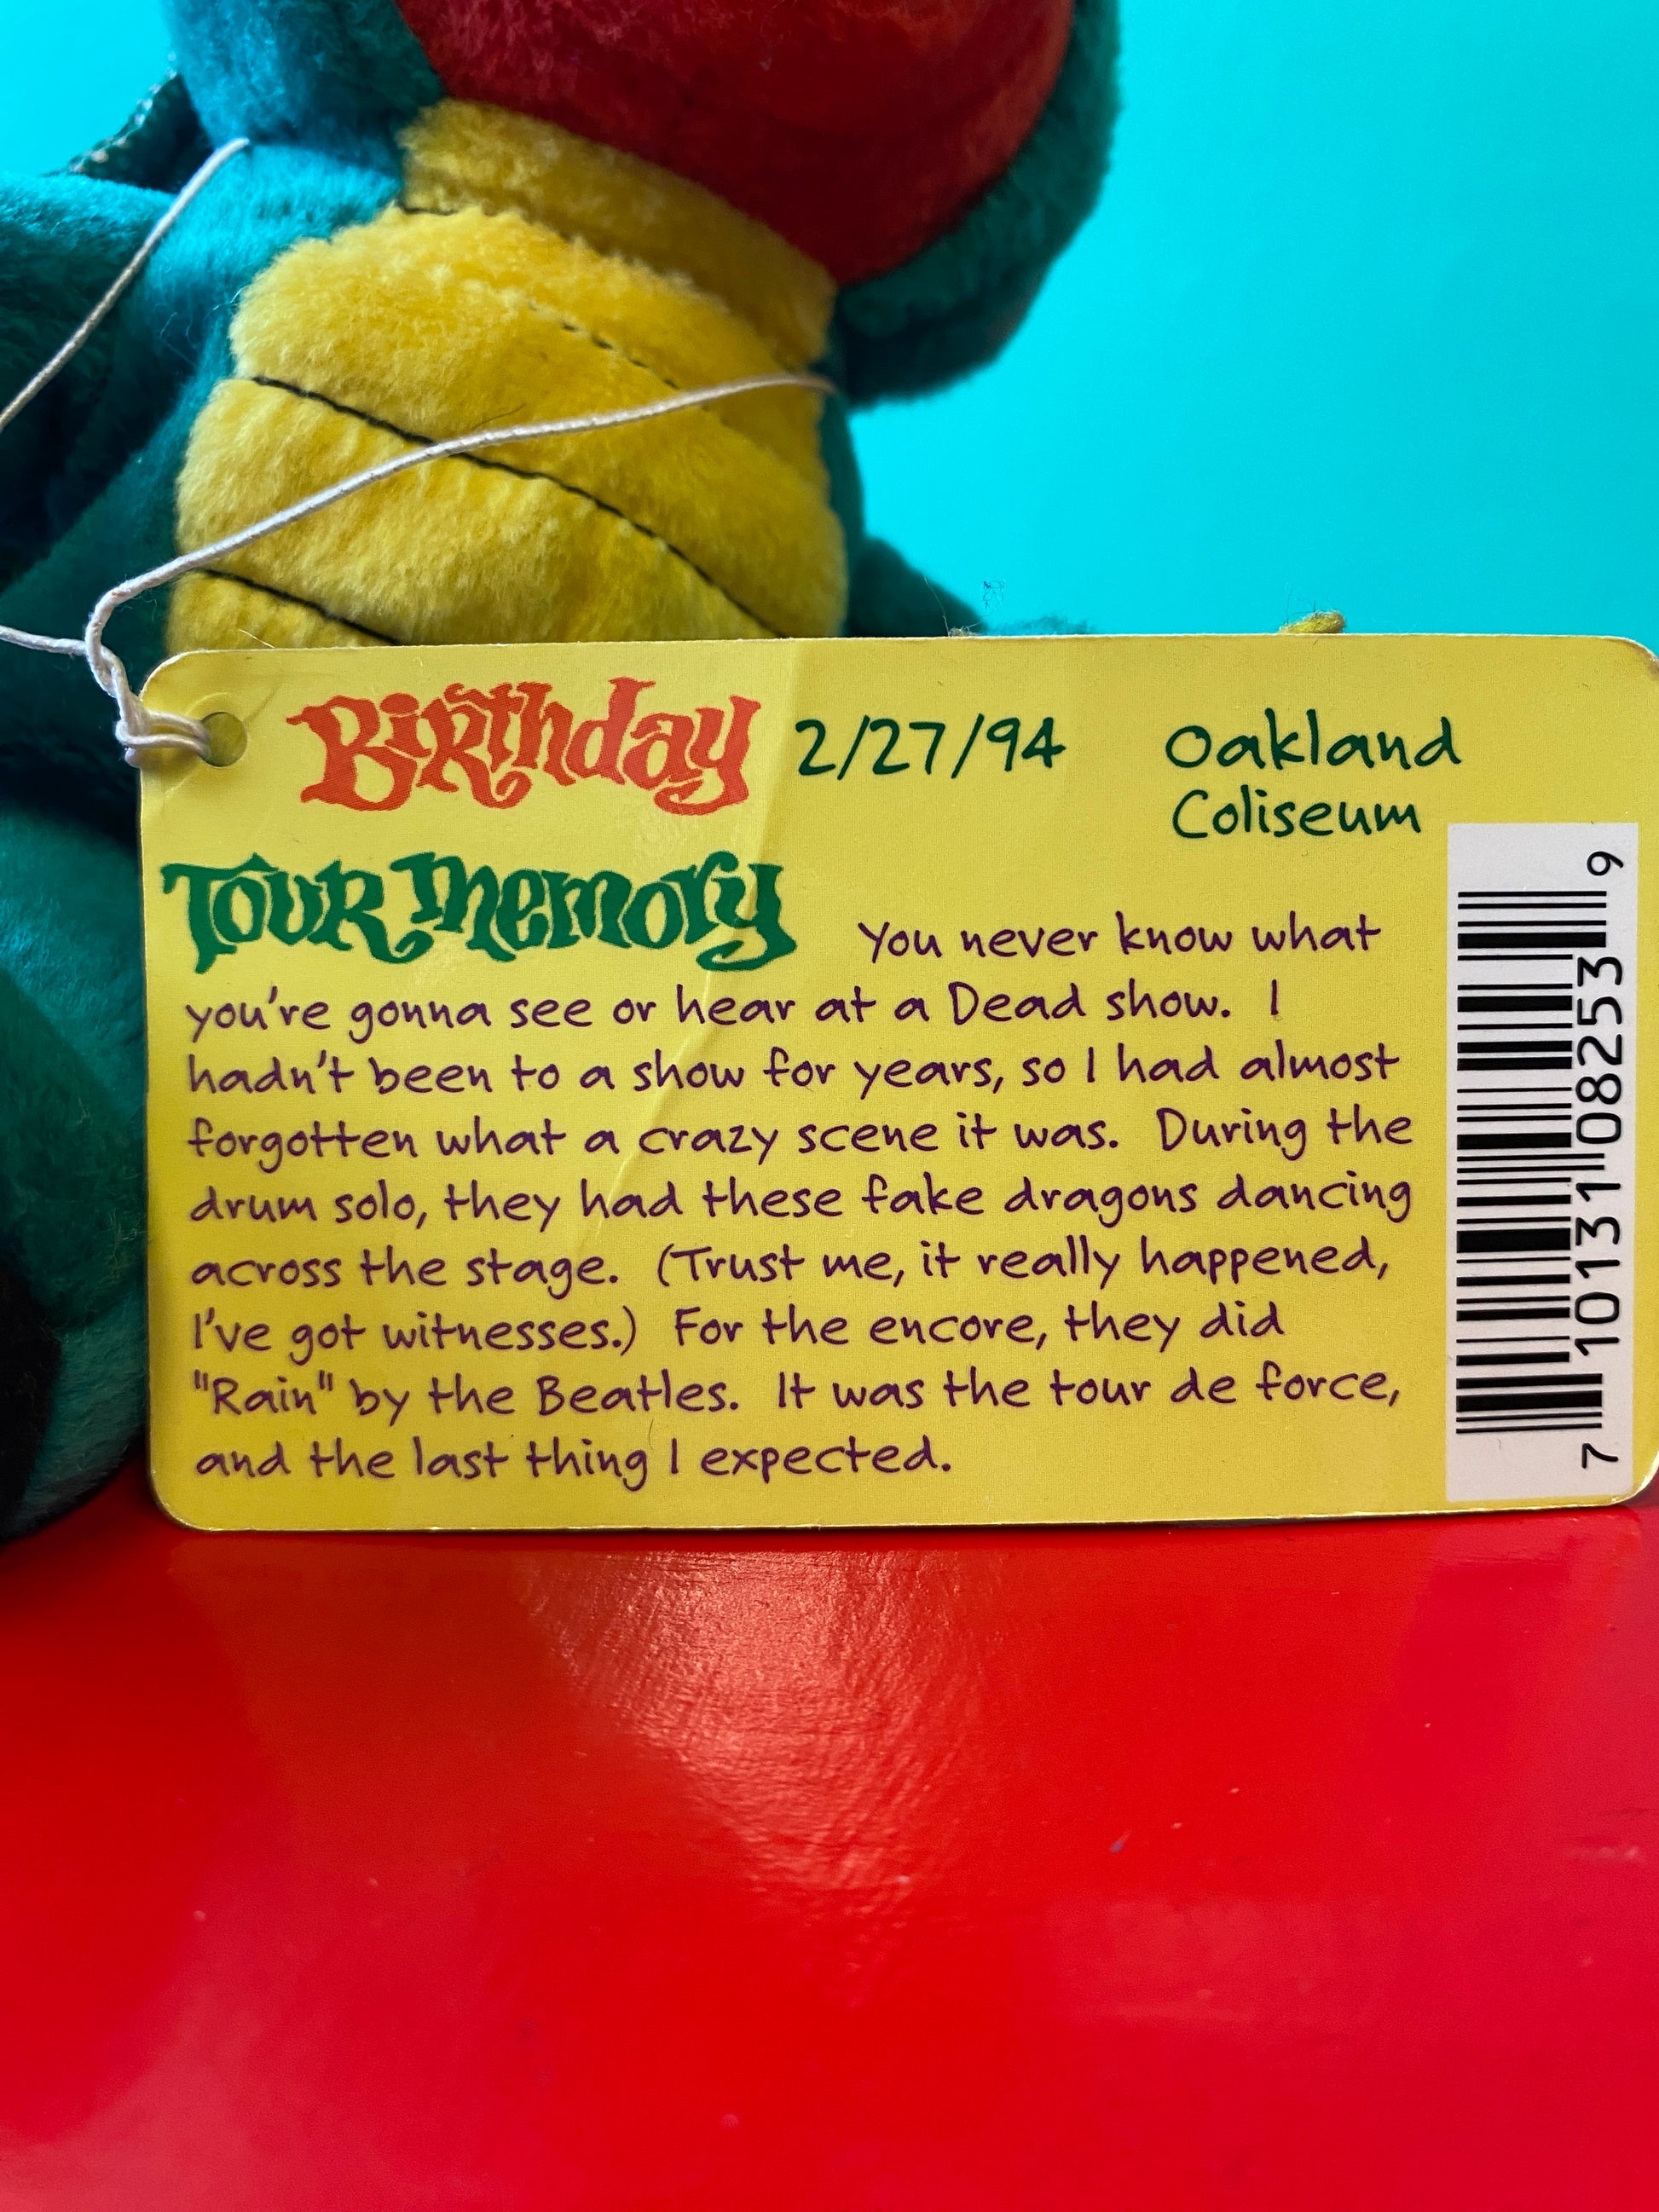 Birthday 2/27/94 Oakland
Coliseum
Tour Memory You never know what
you're gonna see or hear at a Dead show. I
hadn't been to a show for years, so I had almost
forgotten what a crazy scene it was. During the
drum solo, they had these fake dragons dancing
across the stage. (Trust me, it really happened,
I've got witnesses.) For the encore, they did
"Rain" by the Beatles. It was the tour de force,
and the last thing I expected.
7 10131 08253 9